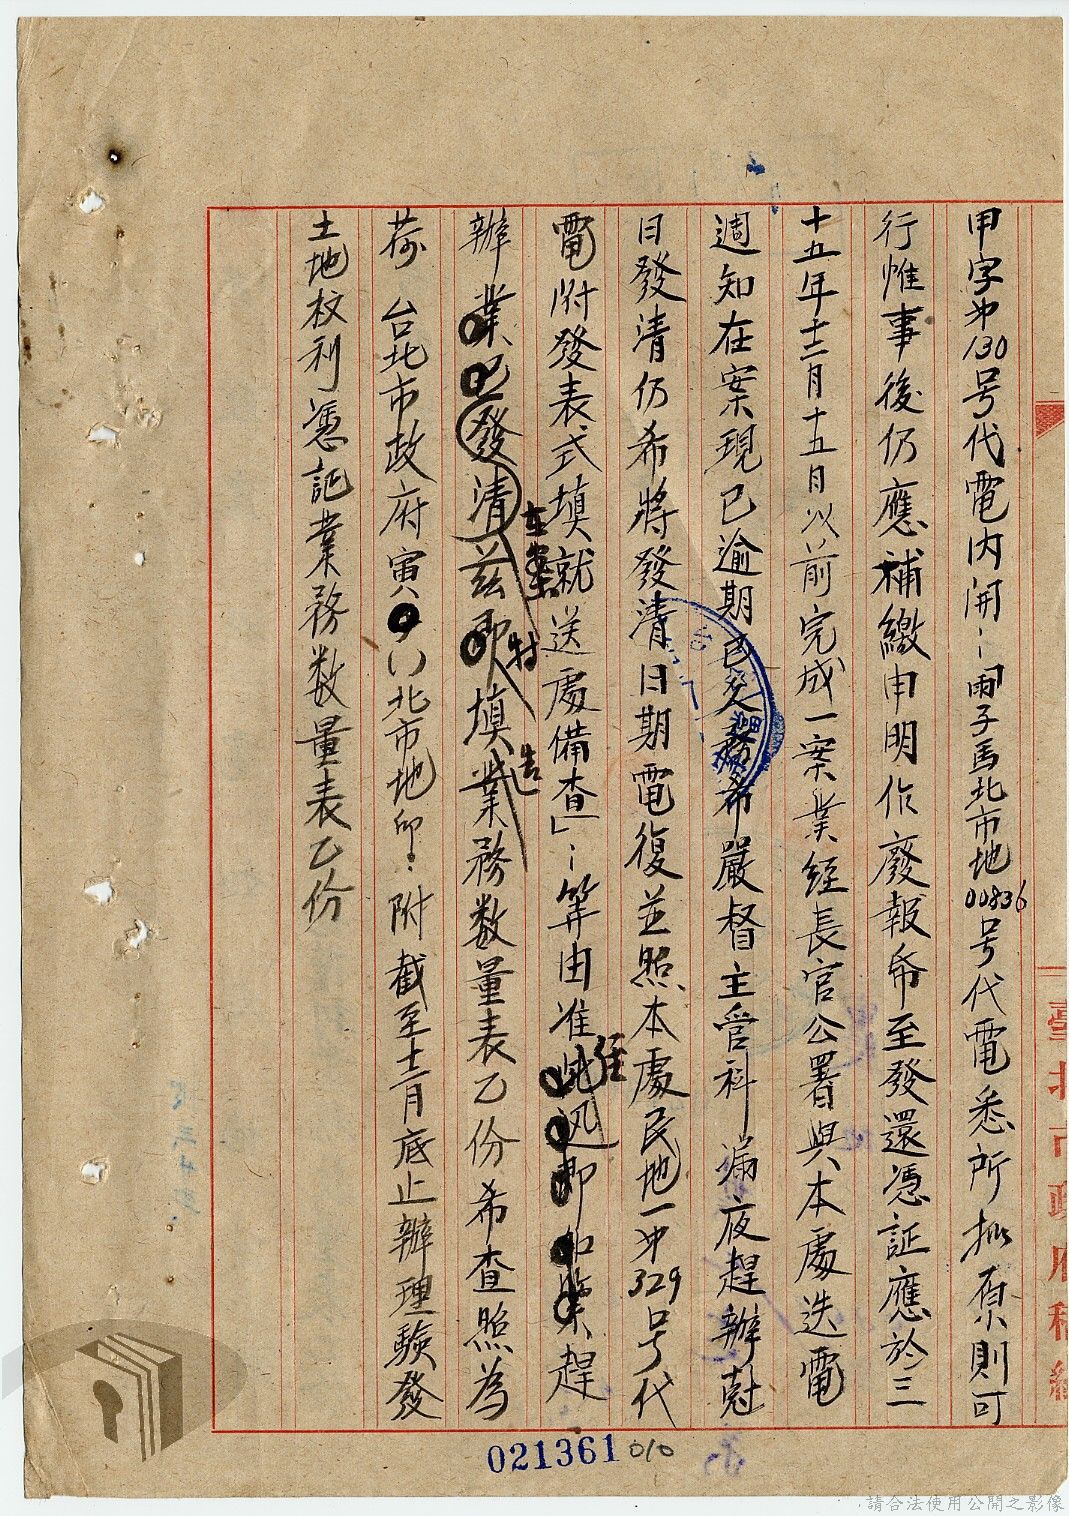 甲字第130号代電内開：「丙子馬北市地00836号代電悉所擬原則可
行惟事後仍應補繳申明作廢報希至發還憑証應於三
十五年十二月十五日以前完成一案業經長官公署與本處迭電
週知在案現已逾期已久務希嚴督主管科漏夜趕辦尅
日發清仍希將發清日期電復並照本處民地一第329号代
電附發表式填就送處備查」：等由准此迅即 趕
辦業已發清茲即填業務數量表乙份希查照為
在案
特
造
荷 台北市政府寅 北市地印：附截至十二月底止辦理驗發
土地权利憑証業務数量表乙份
臺北市政府稿紙
021361
010
請合法使用公開之影像